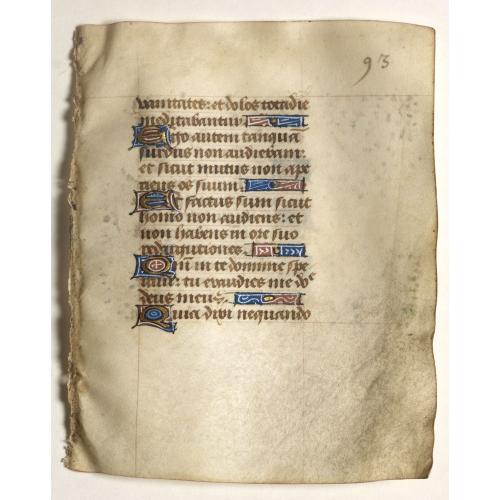 93
vanitates: et dolos tota die
meditabantur
Ego autem tanqua
surdus non audiebam:
et sicut mutus non ape
riens os suum
Et factus sum sicut
homo non audiens: et
non habens in ore suo
redargutiones
Qm in te domine spe
raui: tu exaudies me
deus meus
Quia dixi nequando